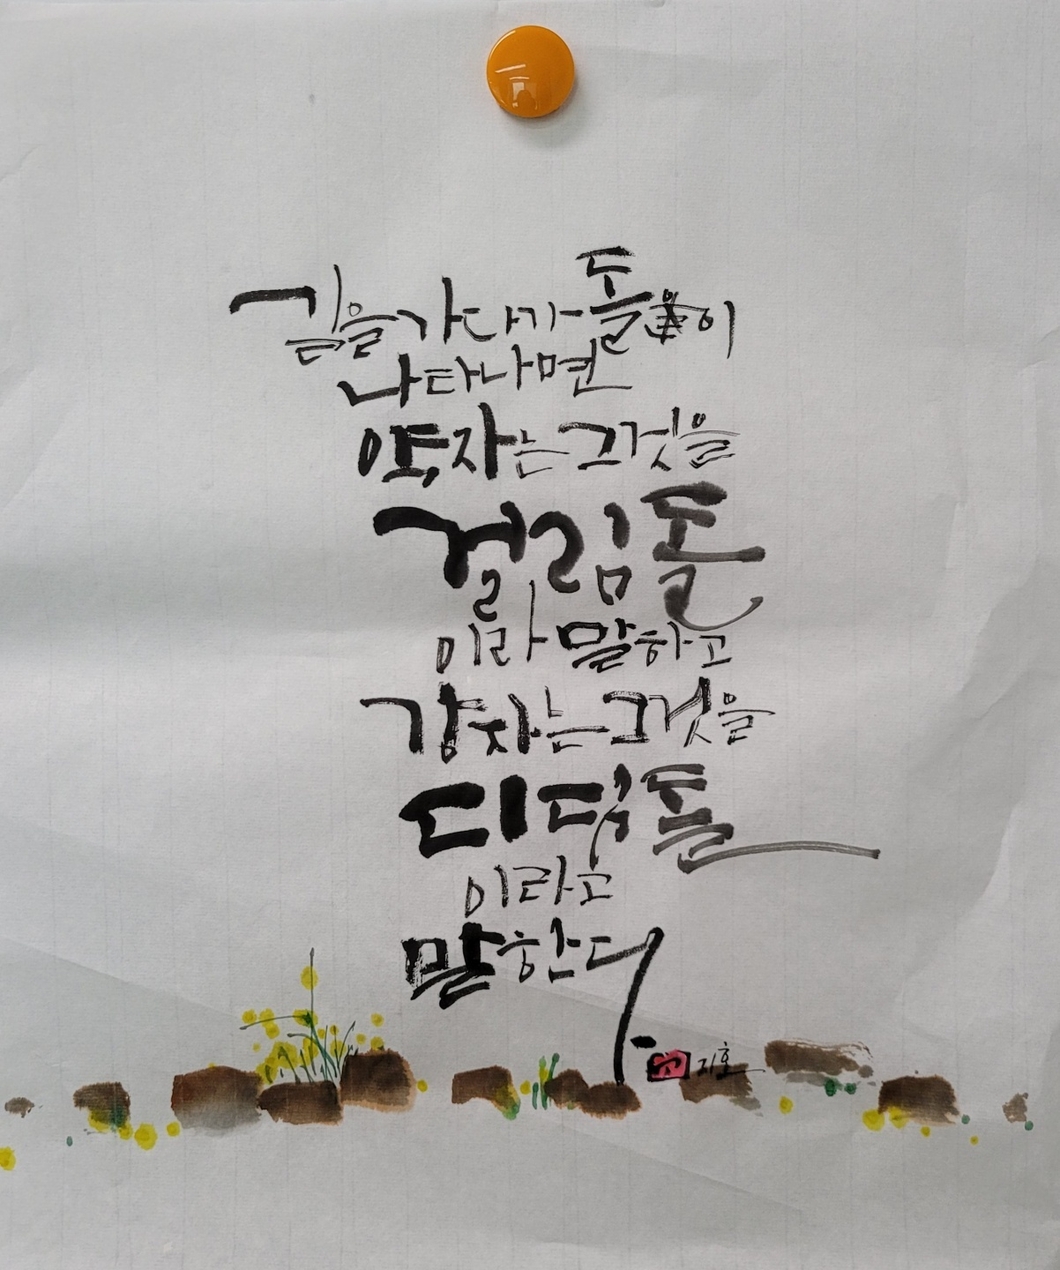 길을 가다가 돌이
나타나면
약자는 그것을
걸림돌
이라 말하고
강자는 그것을
디딤돌
이라고
말한다.
지호